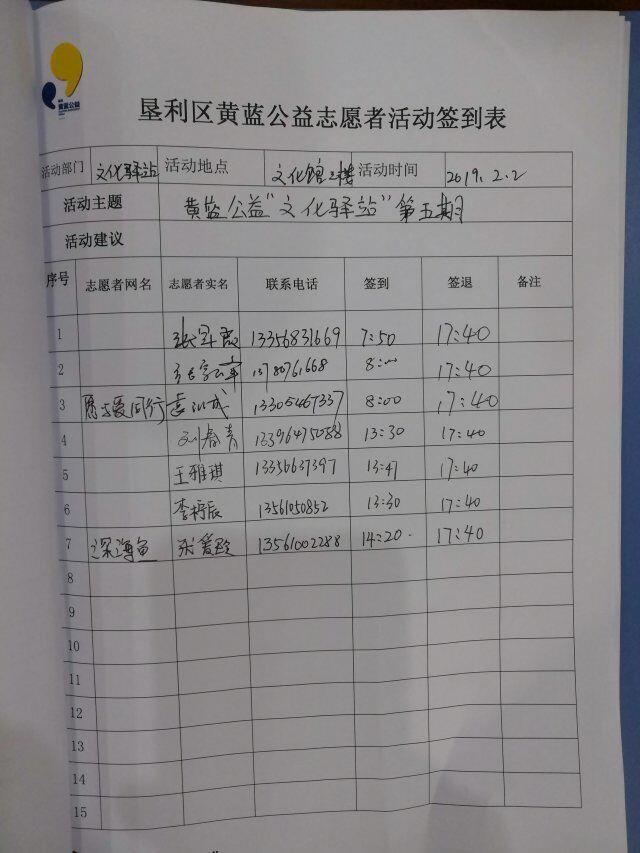 黄蓝公益
垦利区黄蓝公益志愿者活动签到表
活动部门 文化驿站 活动地点 文化馆三楼 活动时间 2019.2.2
活动主题 黄蓝公益“文化驿站”第五期
活动建议
序号 志愿者网名 志愿者实名 联系电话 签到 签退 备注
1 13356831669 7:50 17:40
2 13780761668 8:00 17:40
3 愿与爱同行 13305467337 8:00 17:40
4 刘春青 13396475088 13:30 17:40
5 王雅琪 13356637397 13:47 17:40
6 13561050852 13:30 17:40
7 深海鱼 13561002288 14:20 17:40
8
9
10
11
12
13
14
15